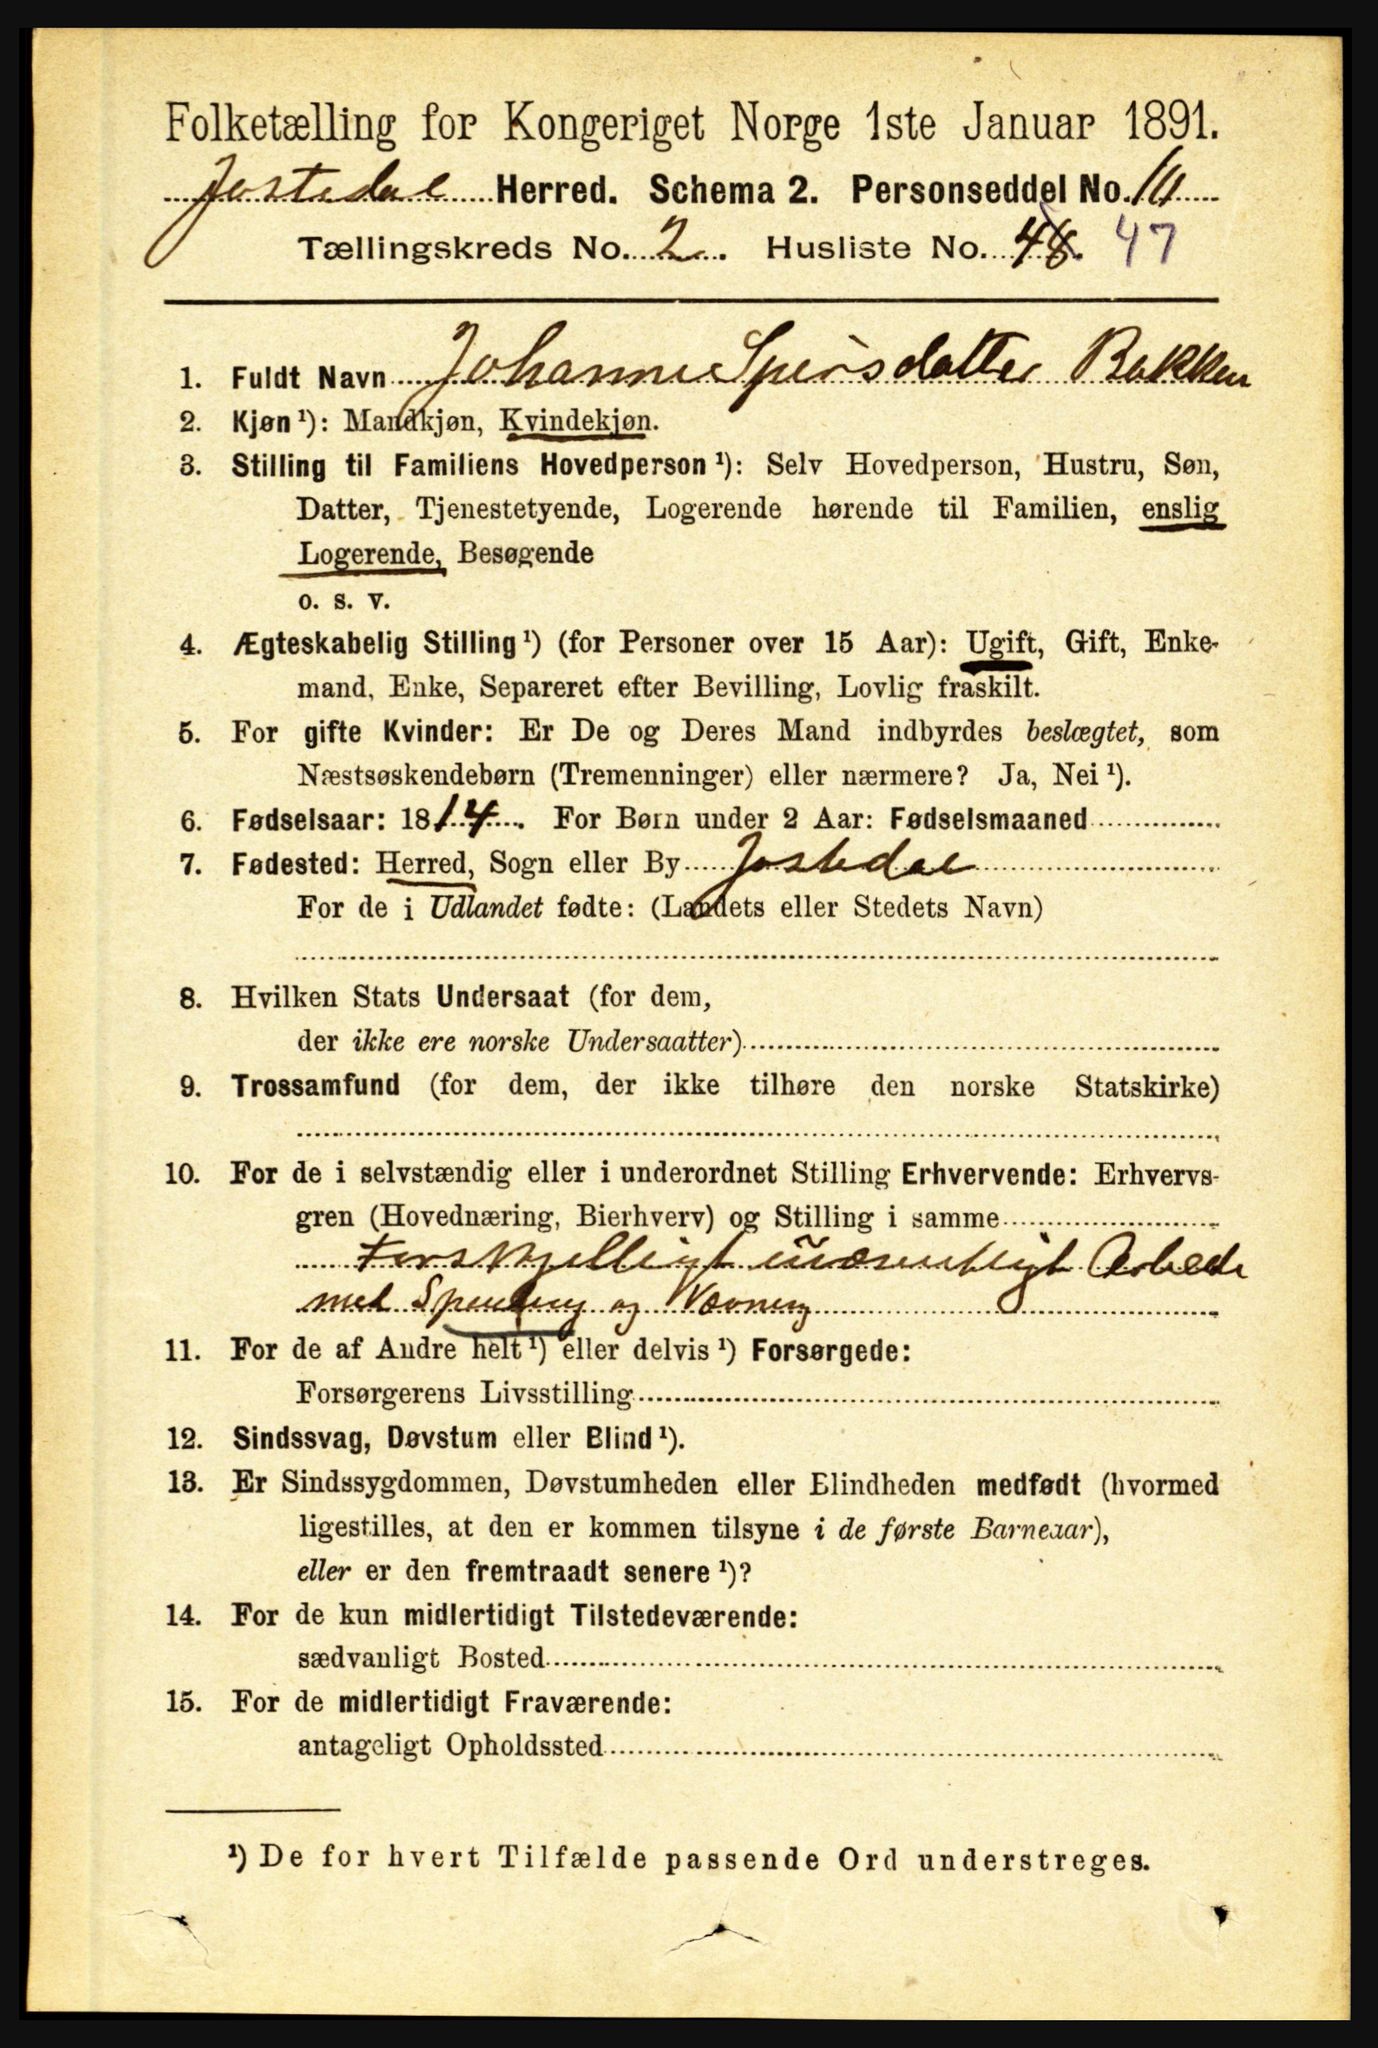 Folketælling for Kongeriget Norge 1ste Januar 1891.
Jostedal Herred. Schema 2. Personseddel No.
Tællingskreds No. 2. Husliste No. 48. 47
1. Fuldt Navn Johanne Spersdatter Bakken
2. Kjøn ¹): Mandkjøn, Kvindekjøn.
3. Stilling til Familiens Hovedperson ¹): Selv Hovedperson, Hustru, Søn,
Datter, Tjenestetyende, Logerende hørende til Familien, enslig
Logerende, Besøgende
o. s. v.
4. Ægteskabelig Stilling ¹) (for Personer over 15 Aar): Ugift, Gift, Enke-
mand, Enke, Separeret efter Bevilling, Lovlig fraskilt.
5. For gifte Kvinder: Er De og Deres Mand indbyrdes beslægtet, som
Næstsøskendebørn (Tremenninger) eller nærmere? Ja, Nei ¹).
6. Fødselsaar: 1814. For Børn under 2 Aar: Fødselsmaaned
7. Fødested: Herred, Sogn eller By Jostedal
For de i Udlandet fødte: (Landets eller Stedets Navn)
8. Hvilken Stats Undersaat (for dem,
der ikke ere norske Undersaatter)
9. Trossamfund (for dem, der ikke tilhøre den norske Statskirke)
10. For de i selvstændig eller i underordnet Stilling Erhvervende: Erhvervs-
gren (Hovednæring, Bierhverv) og Stilling i samme
Forskjelligt uvæsentligt Arbede
med Spinding og Vævning
11. For de af Andre helt ¹) eller delvis ¹) Forsørgede:
Forsørgerens Livsstilling
12. Sindssvag, Døvstum eller Blind ¹).
13. Er Sindssygdommen, Døvstumheden eller Blindheden medfødt (hvormed
ligestilles, at den er kommen tilsyne i de første Barneaar),
eller er den fremtraadt senere ¹)?
14. For de kun midlertidigt Tilstedeværende:
sædvanligt Bosted
15. For de midlertidigt Fraværende:
antageligt Opholdssted
¹) De for hvert Tilfælde passende Ord understreges.